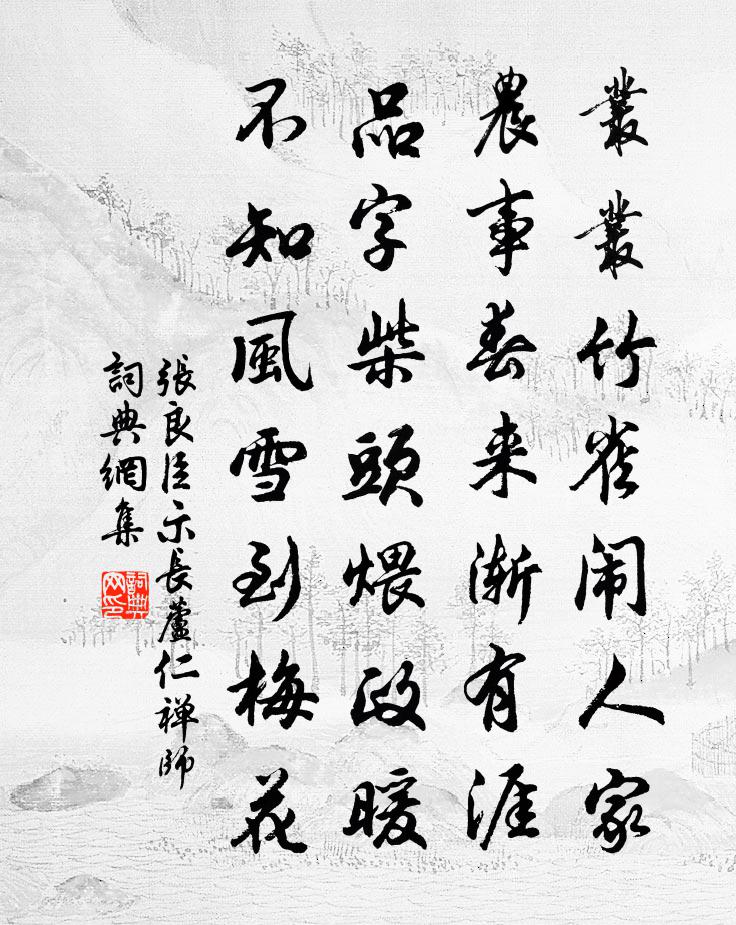 叢叢竹雀闹人家
農事春来漸有涯
品字柴頭煨政暖
不知風雪到梅花
張良臣示長蘆仁禅師
詞典網集
詞典网印